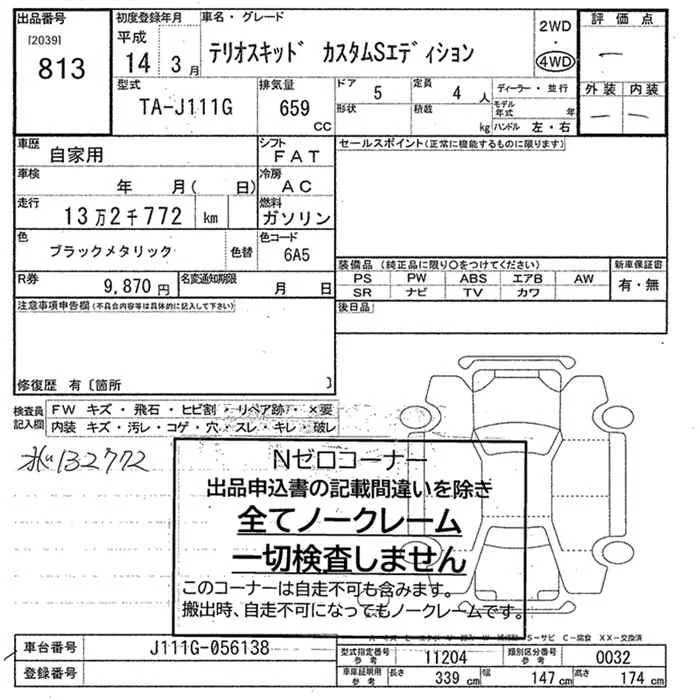 出品番号
[2039]
813
初度登録年月
平成
14 3月
車名・グレード
テリオスキッド カスタムSエディション
2WD
・
4WD
評価点
―
外装 内装
― ―
型式
TA-J111G
排気量
659
CC
ドア
5
定員
4 人
形状
積載
kg
ディーラー・並行
モデル年式 年
ハンドル 左・右
車歴
自家用
シフト
FAT
セールスポイント(正常に機能するものに限ります)
車検
年 月( 日)
冷房
AC
走行
13万2千772 km
燃料
ガソリン
色
ブラックメタリック
色替
色コード
6A5
装備品 (純正品に限り○をつけてください)
PS PW ABS エアB AW
SR ナビ TV カワ
新車保証書
有・無
R券
9,870円
名変通知期限
月 日
注意事項申告欄(不具合内容等は具体的に記入して下さい)
後日品
修復歴 有〔箇所 〕
検査員記入欄
FW キズ・飛石・ヒビ割・リペア跡・×要
内装 キズ・汚レ・コゲ・穴・スレ・キレ・破レ
132772
Nゼロコーナー
出品申込書の記載間違いを除き
全てノークレーム
一切検査しません
このコーナーは自走不可も含みます。
搬出時、自走不可になってもノークレームです。
S-サビ C-腐食 XX-交換済
車台番号
J111G-056138
登録番号
型式指定番号
参考
11204
類別区分番号
参考
0032
車庫証明用
参考
長さ
339 cm
幅
147 cm
高さ
174 cm